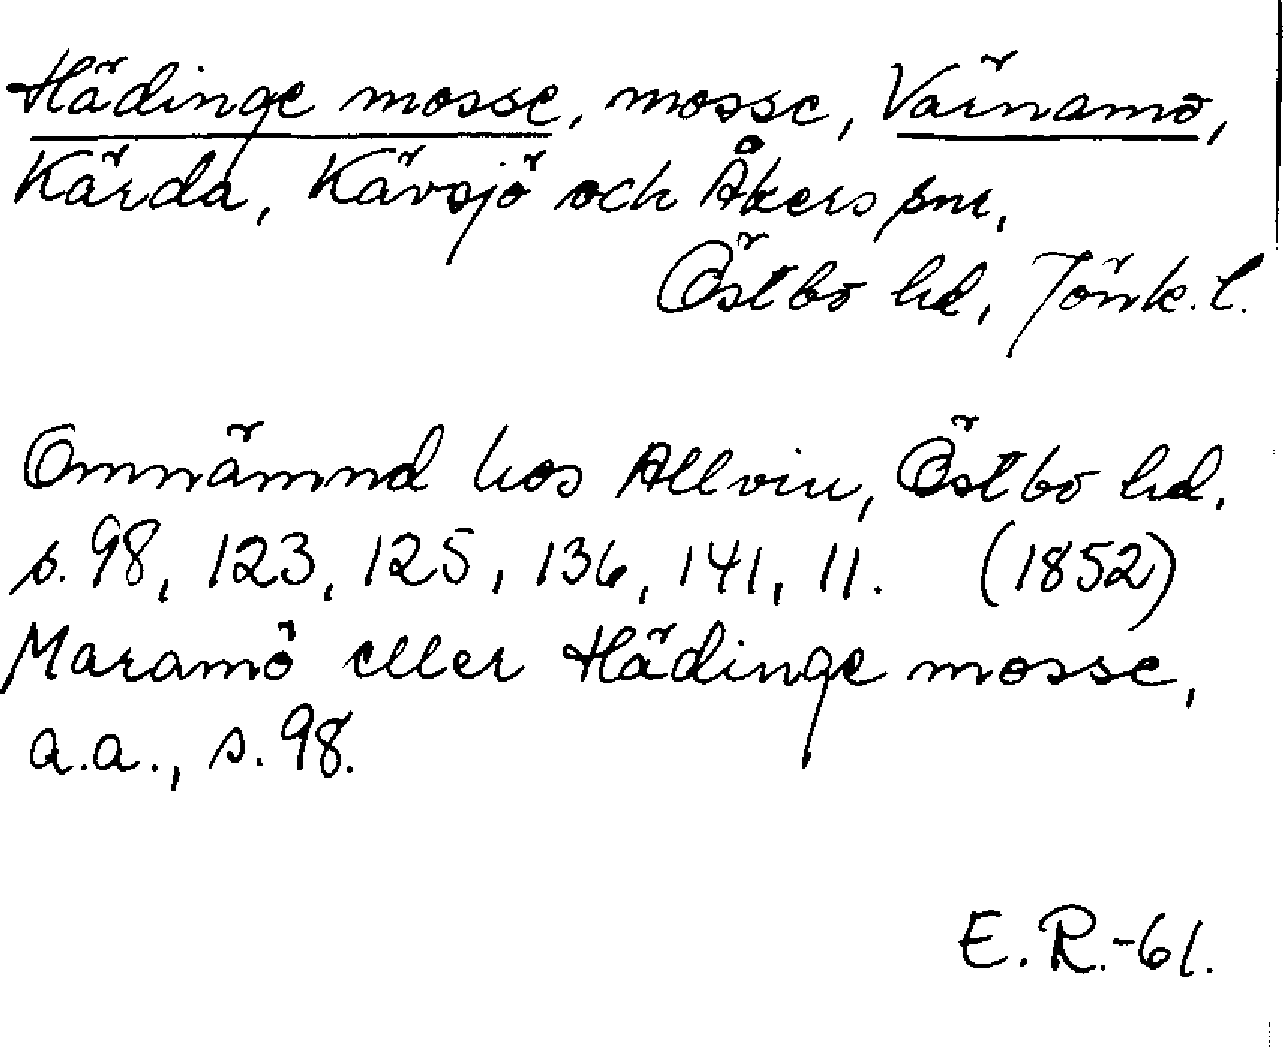 Hädinge mosse, mosse, Värnamo,
Kärda, Kävsjö och Åkers snr,
Östbo hd, Jönk.l.
Omnämnd hos Allvin, Östbo hd.
s.98, 123, 125, 136, 141, 11. (1852)
Maramö eller Hädinge mosse,
a.a., s.98.
E.R.-61.